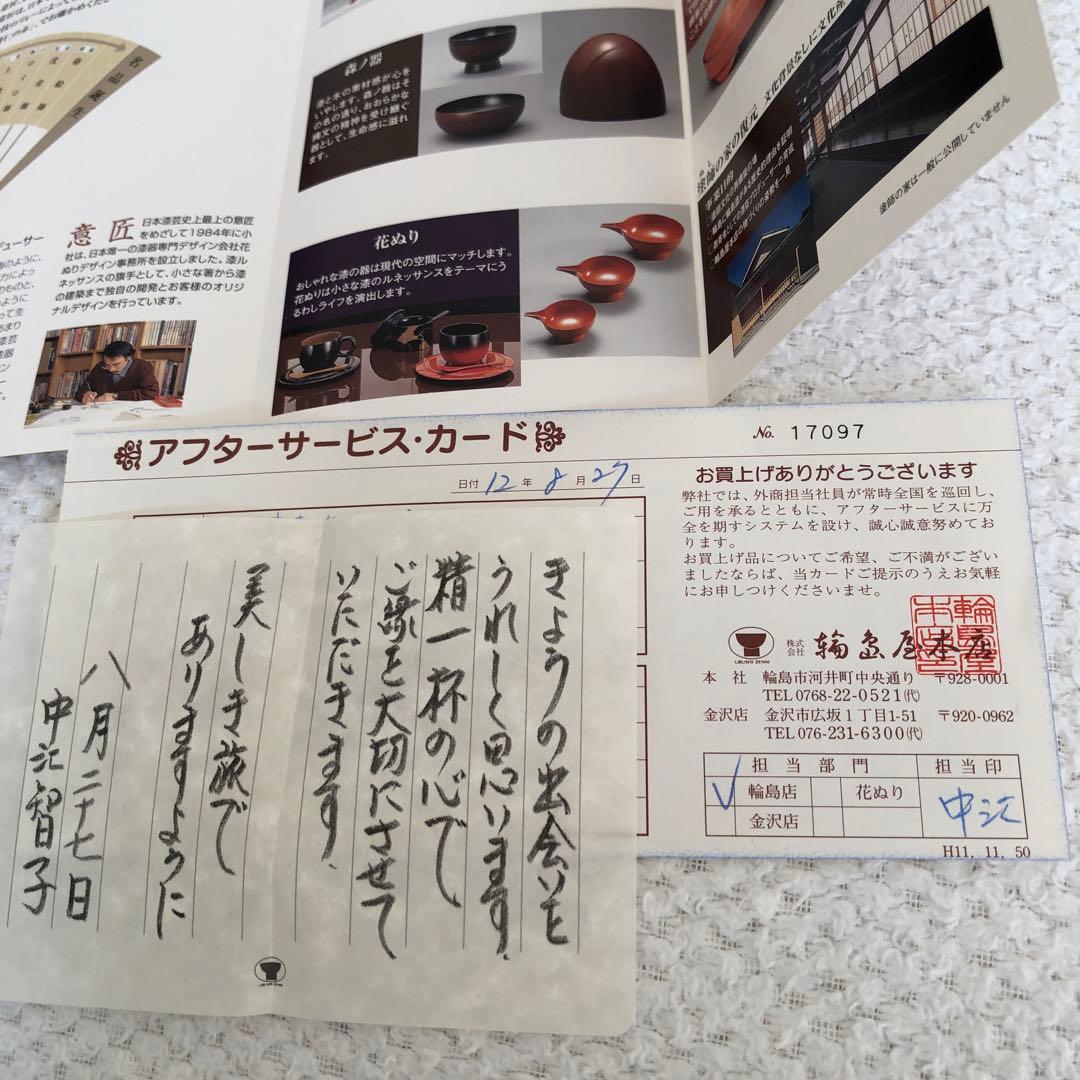 意匠
日本漆芸史上最上の意匠
をめざして1984年に小
社は、日本唯一の漆器専門デザイン会社花
ぬりデザイン事務所を設立しました。漆ル
ネッサンスの旗手として、小さな箸から漆
の建築まで独自の開発とお客様のオリジ
ナルデザインを行っています。
森ノ器
漆と木の素材感が心を
いやします。森ノ器はそ
の名の通り、おおらかな
縄文の精神を受け継ぐ
器として、生命感に溢れ
ます。
花ぬり
おしゃれな漆の器は現代の空間にマッチします。
花ぬりは小さな漆のルネッサンスをテーマにう
るわしライフを演出します。
塗師の家の復元 文化背景なしに文化産
塗師の家は一般に公開していません
アフターサービス・カード
No. 17097
日付 12年8月27日
お買上げありがとうございます
弊社では、外商担当社員が常時全国を巡回し、
ご用を承るとともに、アフターサービスに万
全を期すシステムを設け、誠心誠意努めてお
ります。
お買上げ品についてご希望、ご不満がござい
ましたならば、当カードご提示のうえお気軽
にお申しつけくださいませ。
URUSHI ZENNI
株式会社 輪島屋本店
本社 輪島市河井町中央通り 〒928-0001
TEL0768-22-0521(代)
金沢店 金沢市広坂1丁目1-51 〒920-0962
TEL076-231-6300(代)
担当部門 担当印
✓ 輪島店 花ぬり 中江
金沢店
H11. 11. 50
きょうの出会いを
うれしく思います。
精一杯の心で
ご縁を大切にさせて
いただきます。
美しき旅で
ありますように
八月二十七日
中江智子
URUSHI ZENNI